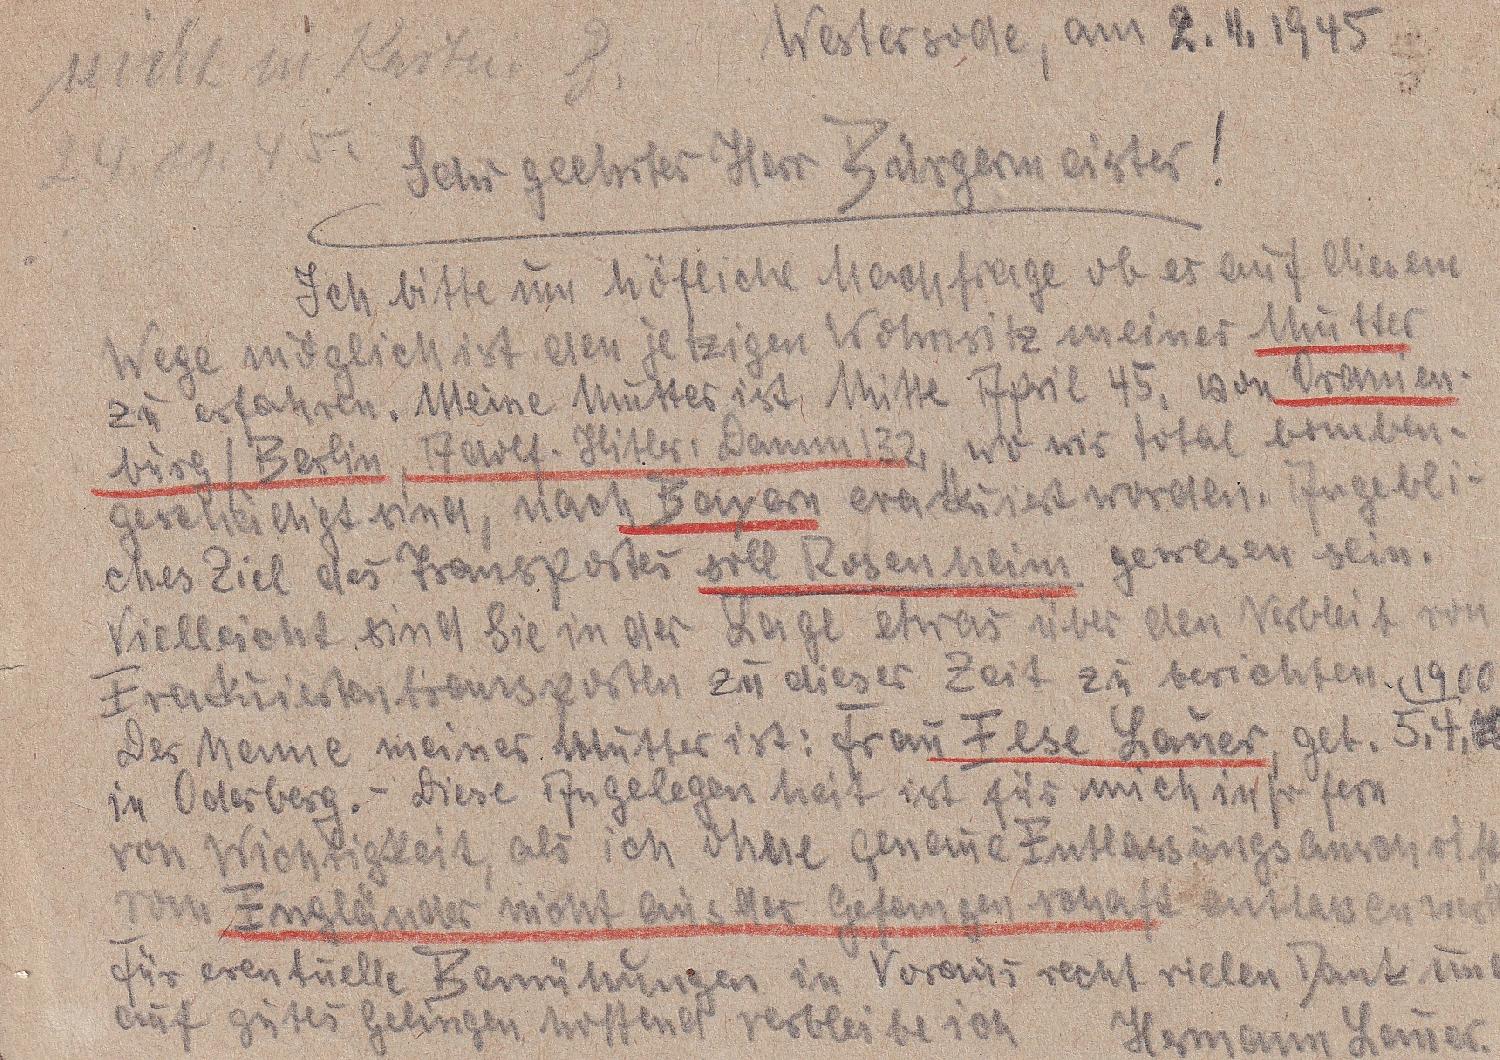 Westersode, am 2.11.1945
nicht in Kartei
24.11.45.
Sehr geehrter Herr Bürgermeister!
Ich bitte um höfliche Nachfrage ob es auf diesem
Wege möglich ist den jetzigen Wohnsitz meiner Mutter
zu erfahren. Meine Mutter ist Mitte April 45, von Oranien-
burg/Berlin, Adolf-Hitler-Damm 132, wo wir total bomben-
geschädigt sind, nach Bayern evakuiert worden. Angebli-
ches Ziel des Transportes soll Rosenheim gewesen sein.
Vielleicht sind Sie in der Lage etwas über den Verbleib von
Evakuiertentransporten zu dieser Zeit zu berichten.
1900
Der Name meiner Mutter ist: Frau Else Lauer, geb. 5.4.
in Oderberg. - Diese Angelegenheit ist für mich in so fern
von Wichtigkeit, als ich ohne genaue Entlassungsanschrift
vom Engländer nicht aus der Gefangenschaft entlassen
Für eventuelle Bemühungen in Voraus recht vielen Dank und
auf gutes Gelingen hoffend verbleibe ich Hermann Lauer.